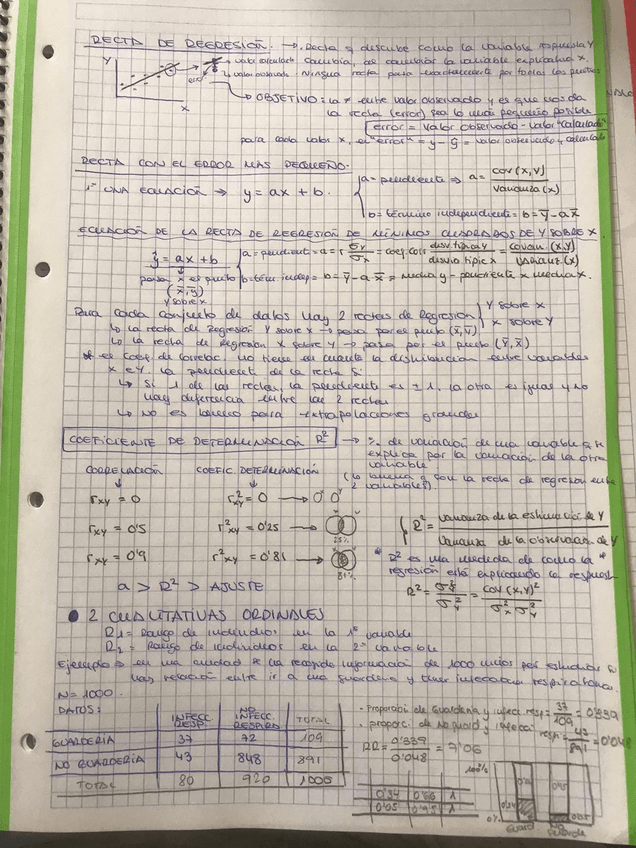 RECTA DE REGRESIÓN. → Recta q describe como la variable respuesta Y
Y valor calculado cambia, al cambiar la variable explicativa X.
valor observado Ninguna recta pasa exactamente por todos los puntos
error
X
→ OBJETIVO: la ≠ entre valor observado y el que nos da
la recta (error) sea lo más pequeño posible
error = valor observado - valor "calculado"
para cada valor x, el "error" = y - ŷ = valor observado y calculado
RECTA CON EL ERROR MÁS PEQUEÑO.
1º UNA ECUACIÓN → y = ax + b.
a = pendiente ⇒ a = cov(x,y) / varianza(x)
b = término independiente = b = ȳ - a x̄
ECUACIÓN DE LA RECTA DE REGRESIÓN DE MÍNIMOS CUADRADOS DE Y SOBRE X
ŷ = ax + b
a = pendiente = a = r σy/σx = coef. corr desv. típica Y / desv. típic X = covar. (x,y) / varianz. (x)
pasa x el punto (x̄, ȳ)
Y sobre X
b = térm. indep = b = ȳ - a x̄ = media y - pendiente x media x.
Para cada conjunto de datos hay 2 rectas de Regresión Y sobre X
X sobre Y
↳ la recta de regresión Y sobre X → pasa por el punto (x̄, ȳ)
↳ la recta de regresión X sobre Y → pasa por el punto (ȳ, x̄)
* el coef. de correlac. no tiene en cuenta la distribución entre variables
X e Y la pendiente de la recta sí
↳ Si 1 de las rectas, la pendiente es ± 1, la otra es igual y no
hay diferencia entre las 2 rectas
↳ No es bueno para extrapolaciones grandes
COEFICIENTE DE DETERMINACIÓN R² → % de variación de una variable q se
explica por la variación de la otra
variable.
(lo buena q son la recta de regresión entre
2 variables)
CORRELACIÓN COEFIC. DETERMINACIÓN
rxy = 0 r²xy = 0
rxy = 0'5 r²xy = 0'25
25%
rxy = 0'9 r²xy = 0'81
81%
R² = varianza de la estimación de Y / varianza de la observación de Y
* R² es una medida de como la *
regresión está explicando la respuest
R² = σ²ŷ / σ²y = cov(x,y)² / σ²x σ²y
a > R² > AJUSTE
● 2 CUALITATIVAS ORDINALES
R1 = Rango de individuos en la 1ª variable
R2 = Rango de individuos en la 2ª variable
Ejemplo ⇒ en una ciudad se ha recogido información de 1000 niños para estudiar si
hay relación entre ir a una guardería y tener infecciones respiratorias.
N = 1000.
DATOS: INFECC. RESP. NO INFECC. RESPIRO TOTAL
GUARDERIA 37 72 109
NO GUARDERIA 43 848 891
TOTAL 80 920 1000
· Proporción de Guardería y infecc resp = 37/109 = 0'339
· proporc. de No guard y infecci resp = 43/891 = 0'048
RR = 0'339 / 0'048 = 7'06
0'34 0'66 1
0'05 0'95 1
100%
0%
0'34
Guard
No